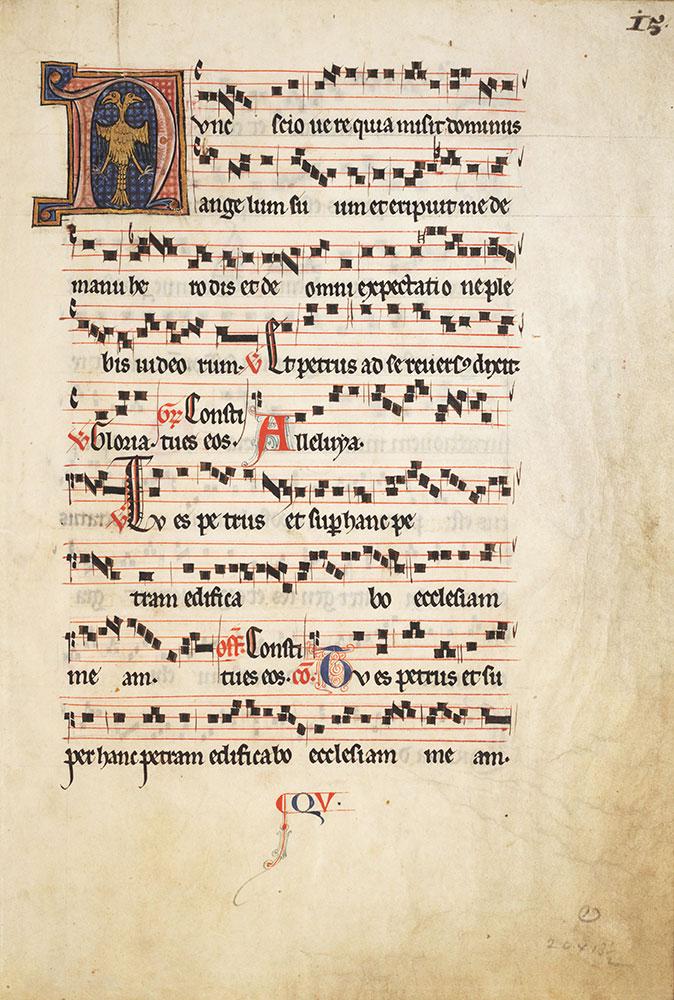 15.
Nunc scio vere quia misit dominus
angelum suum et eripuit me de
manu herodis et de omni expectatione ple
bis iudeorum. V Et petrus ad se revers9 dixit:
V Gloria. Gr. Constitues eos. Alleluya.
V Tu es petrus et sup hanc pe
tram edificabo ecclesiam
meam. off. Constitues eos. co. Tu es petrus et su
per hanc petram edificabo ecclesiam meam.
QV.